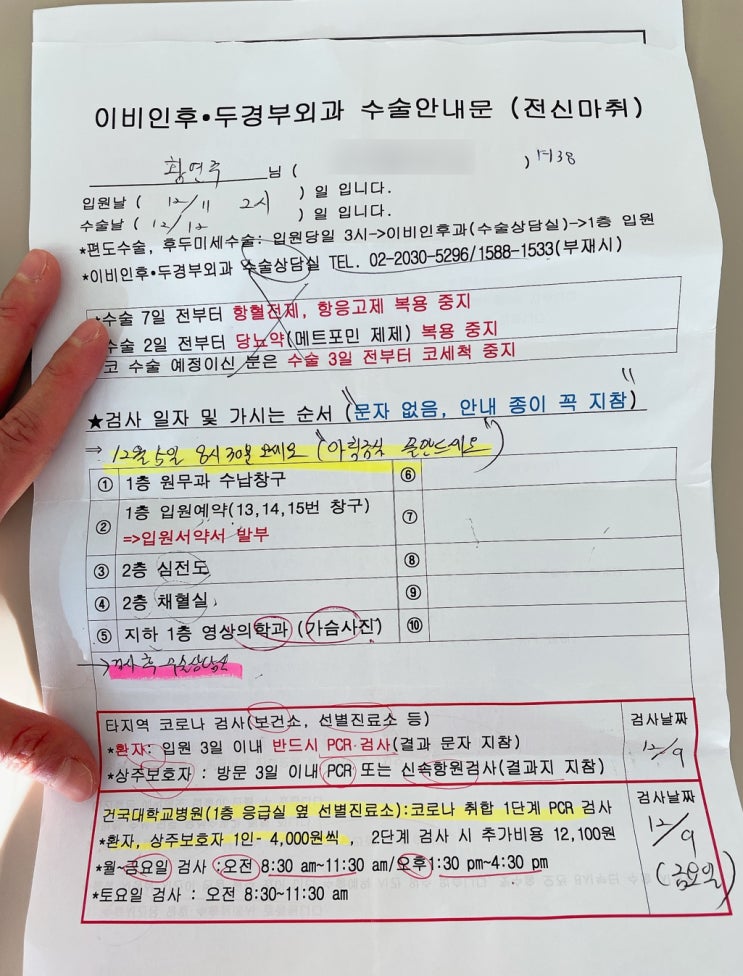 이비인후•두경부외과 수술안내문 (전신마취)
황연주 님 ( )
입원날 ( 12/11 2시 ) 일 입니다.
수술날 ( 12/12 ) 일 입니다.
*편도수술, 후두미세수술: 입원당일 3시->이비인후과(수술상담실)->1층 입원
*이비인후•두경부외과 수술상담실 TEL. 02-2030-5296/1588-1533(부재시)
*수술 7일 전부터 항혈전제, 항응고제 복용 중지
수술 2일 전부터 당뇨약(메트포민 제제) 복용 중지
코 수술 예정이신 분은 수술 3일 전부터 코세척 중지
★검사 일자 및 가시는 순서 (문자 없음, 안내 종이 꼭 지참)
⇒ 12월 5일 8시 30분 오세요
① 1층 원무과 수납창구
② 1층 입원예약(13,14,15번 창구)
=>입원서약서 발부
③ 2층 심전도
④ 2층 채혈실
⑤ 지하 1층 영상의학과 (가슴사진)
⑥
⑦
⑧
⑨
⑩
→ 검사 후 수술상담실
타지역 코로나 검사(보건소, 선별진료소 등)
*환자: 입원 3일 이내 반드시 PCR 검사(결과 문자 지참)
*상주보호자 : 방문 3일 이내 PCR 또는 신속항원검사(결과지 지참)
검사날짜
12/9
건국대학교병원(1층 응급실 옆 선별진료소):코로나 취합 1단계 PCR 검사
*환자, 상주보호자 1인- 4,000원씩 , 2단계 검사 시 추가비용 12,100원
*월~금요일 검사 :오전 8:30 am~11:30 am/오후1:30 pm~4:30 pm
*토요일 검사 : 오전 8:30~11:30 am
검사날짜
12/9
(금요일)